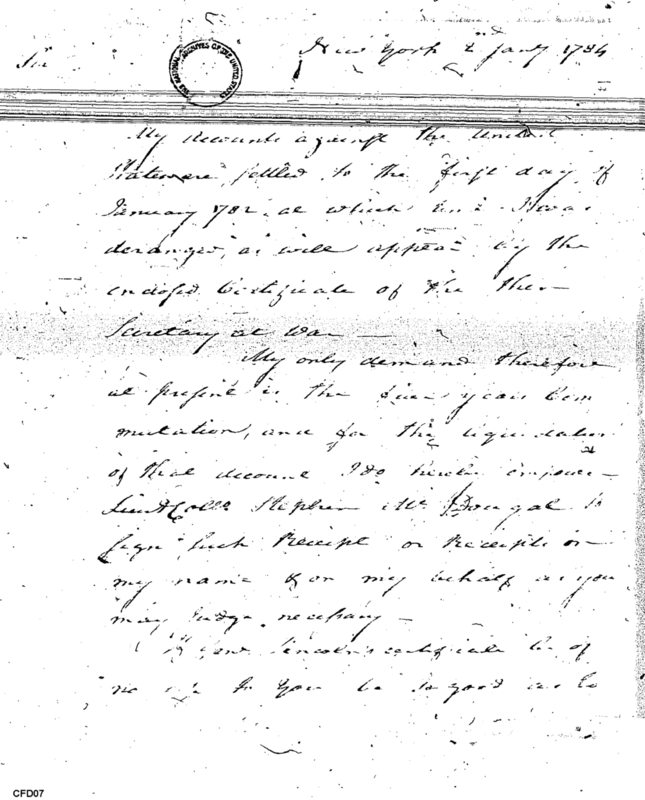 New York 2nd Jany 1784
Sir
THE NATIONAL ARCHIVES OF THE UNITED STATES
My accounts against the United
States are settled to the first day of
January 1782, at which time I was
deranged, as will appear by the
enclosed Certificate of the then
Secretary at War —
My only demand therefore
at present is the five years Com
mutation, and for the liquidation
of that account I do hereby empower
Lieut Collo Stephen McDougal to
sign such Receipt or Receipts in
my name & on my behalf as you
may Judge necessary —
If Genl Lincoln's certificate be of
no use to you be so good as to
CFD07